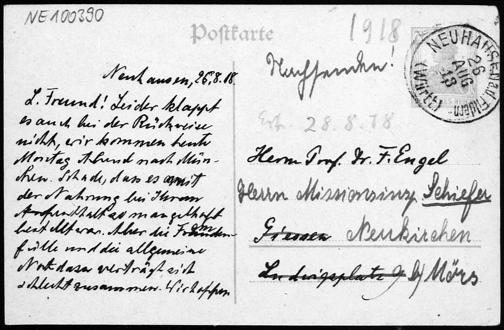 NE100390
Postkarte
1918
NEUHAUSEN (auf Fildern)
26 AUG 18
(Württ)
Neuhausen, 26.8.18.
L. Freund! Leider klappt
es auch bei der Rückreise
nicht, wir kommen heute
Montag Abend nach Mün-
chen. Schade, dass es mit
der Nahrung bei Ihrem
Aufenthalt so mangelhaft
bestellt war. Aber die Fremden-
fülle und die allgemeine
Not dazu verträgt sich
schlecht zusammen. Wir hoffen
Nachsenden!
Erh. 28.8.18
Herrn Prof. Dr. F. Engel
Herrn Missionsinsp. Schiefer
Giessen Neukirchen
Ludwigsplatz 9 b/ Mörs